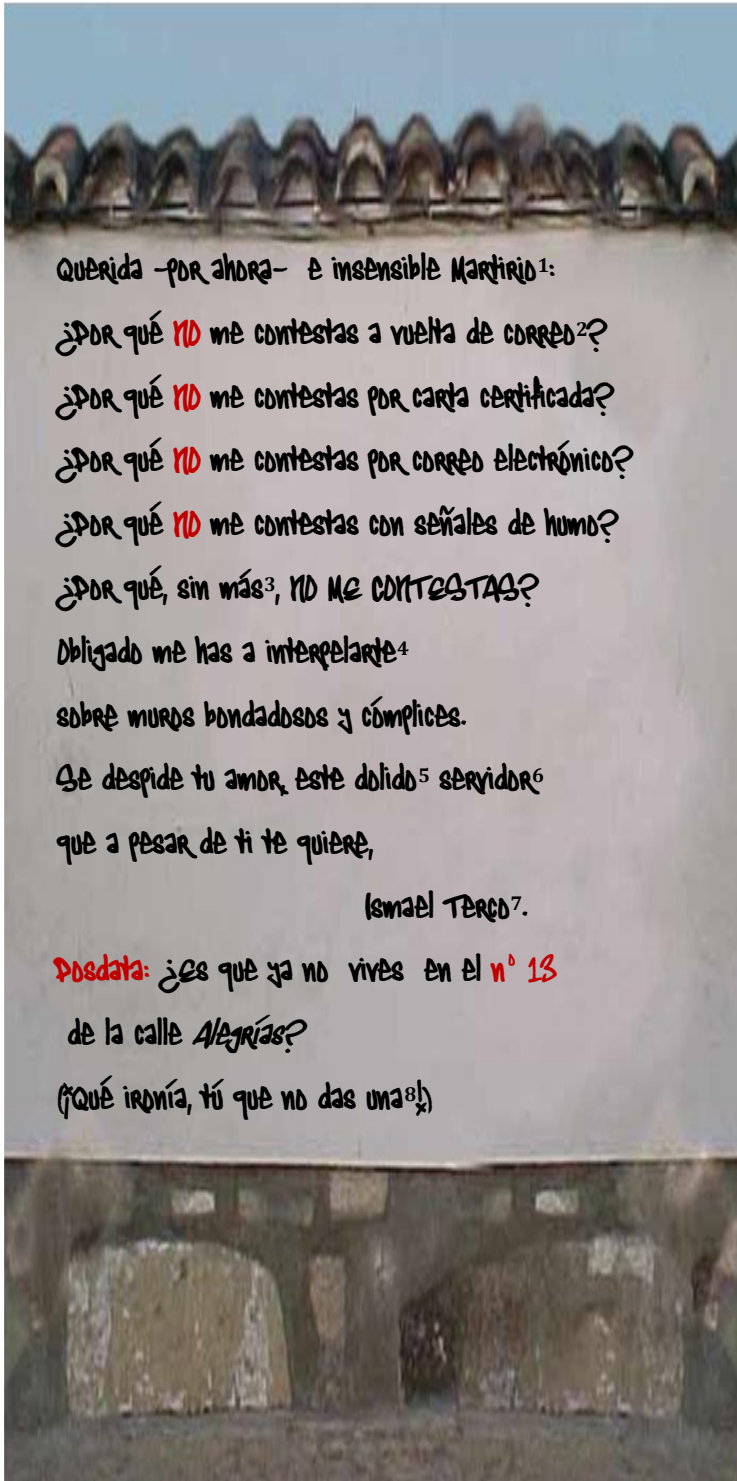 Querida -por ahora- e insensible Martirio¹:
¿Por qué NO me contestas a vuelta de correo²?
¿Por qué NO me contestas por carta certificada?
¿Por qué NO me contestas por correo electrónico?
¿Por qué NO me contestas con señales de humo?
¿Por qué, sin más³, NO ME CONTESTAS?
Obligado me has a interpelarte⁴
sobre muros bondadosos y cómplices.
Se despide tu amor, este dolido⁵ servidor⁶
que a pesar de ti te quiere,
Ismael Terco⁷.
Posdata: ¿Es que ya no vives en el nº 13
de la calle Alegrías?
(¡Qué ironía, tú que no das una⁸!)